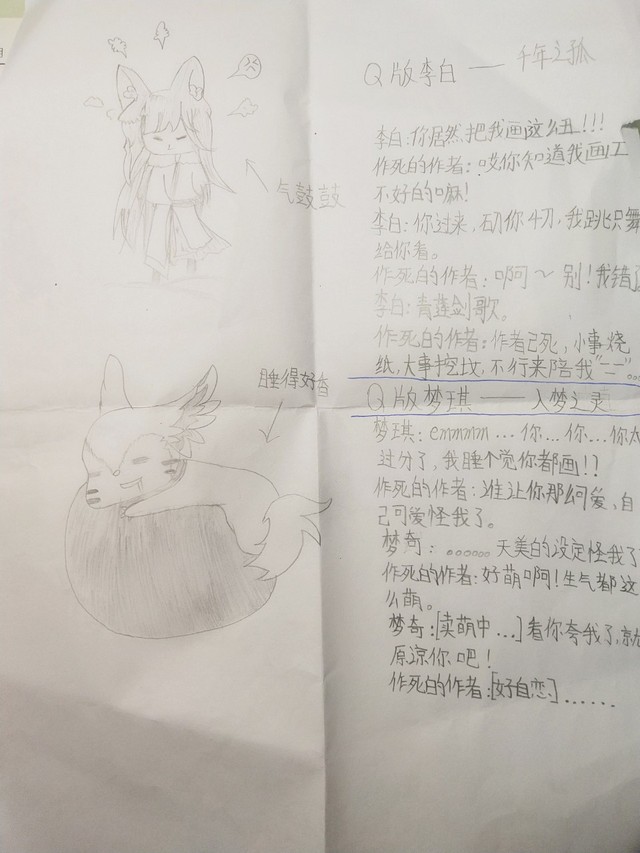 Q版李白——千年之狐
李白:你居然把我画这么丑!!!
作死的作者:哎你知道我画工
不好的嘛!
气鼓鼓
李白:你过来,砍你4刀,我跳只舞
给你看。
作死的作者:啊~别!我错了
李白:青莲剑歌。
作死的作者:作者已死,小事烧
纸,大事挖坟,不行来陪我"一一"。。。
睡得好香
Q版梦琪——入梦之灵
梦琪:emmmm...你...你...你太
过分了,我睡个觉你都画!?
作死的作者:谁让你那么可爱,自
己可爱怪我了。
梦奇:。。。。。。天美的设定怪我了
作死的作者:好萌啊!生气都这
么萌。
梦奇:[卖萌中...]看你夸我了,就
原谅你吧!
作死的作者:[好自恋]......